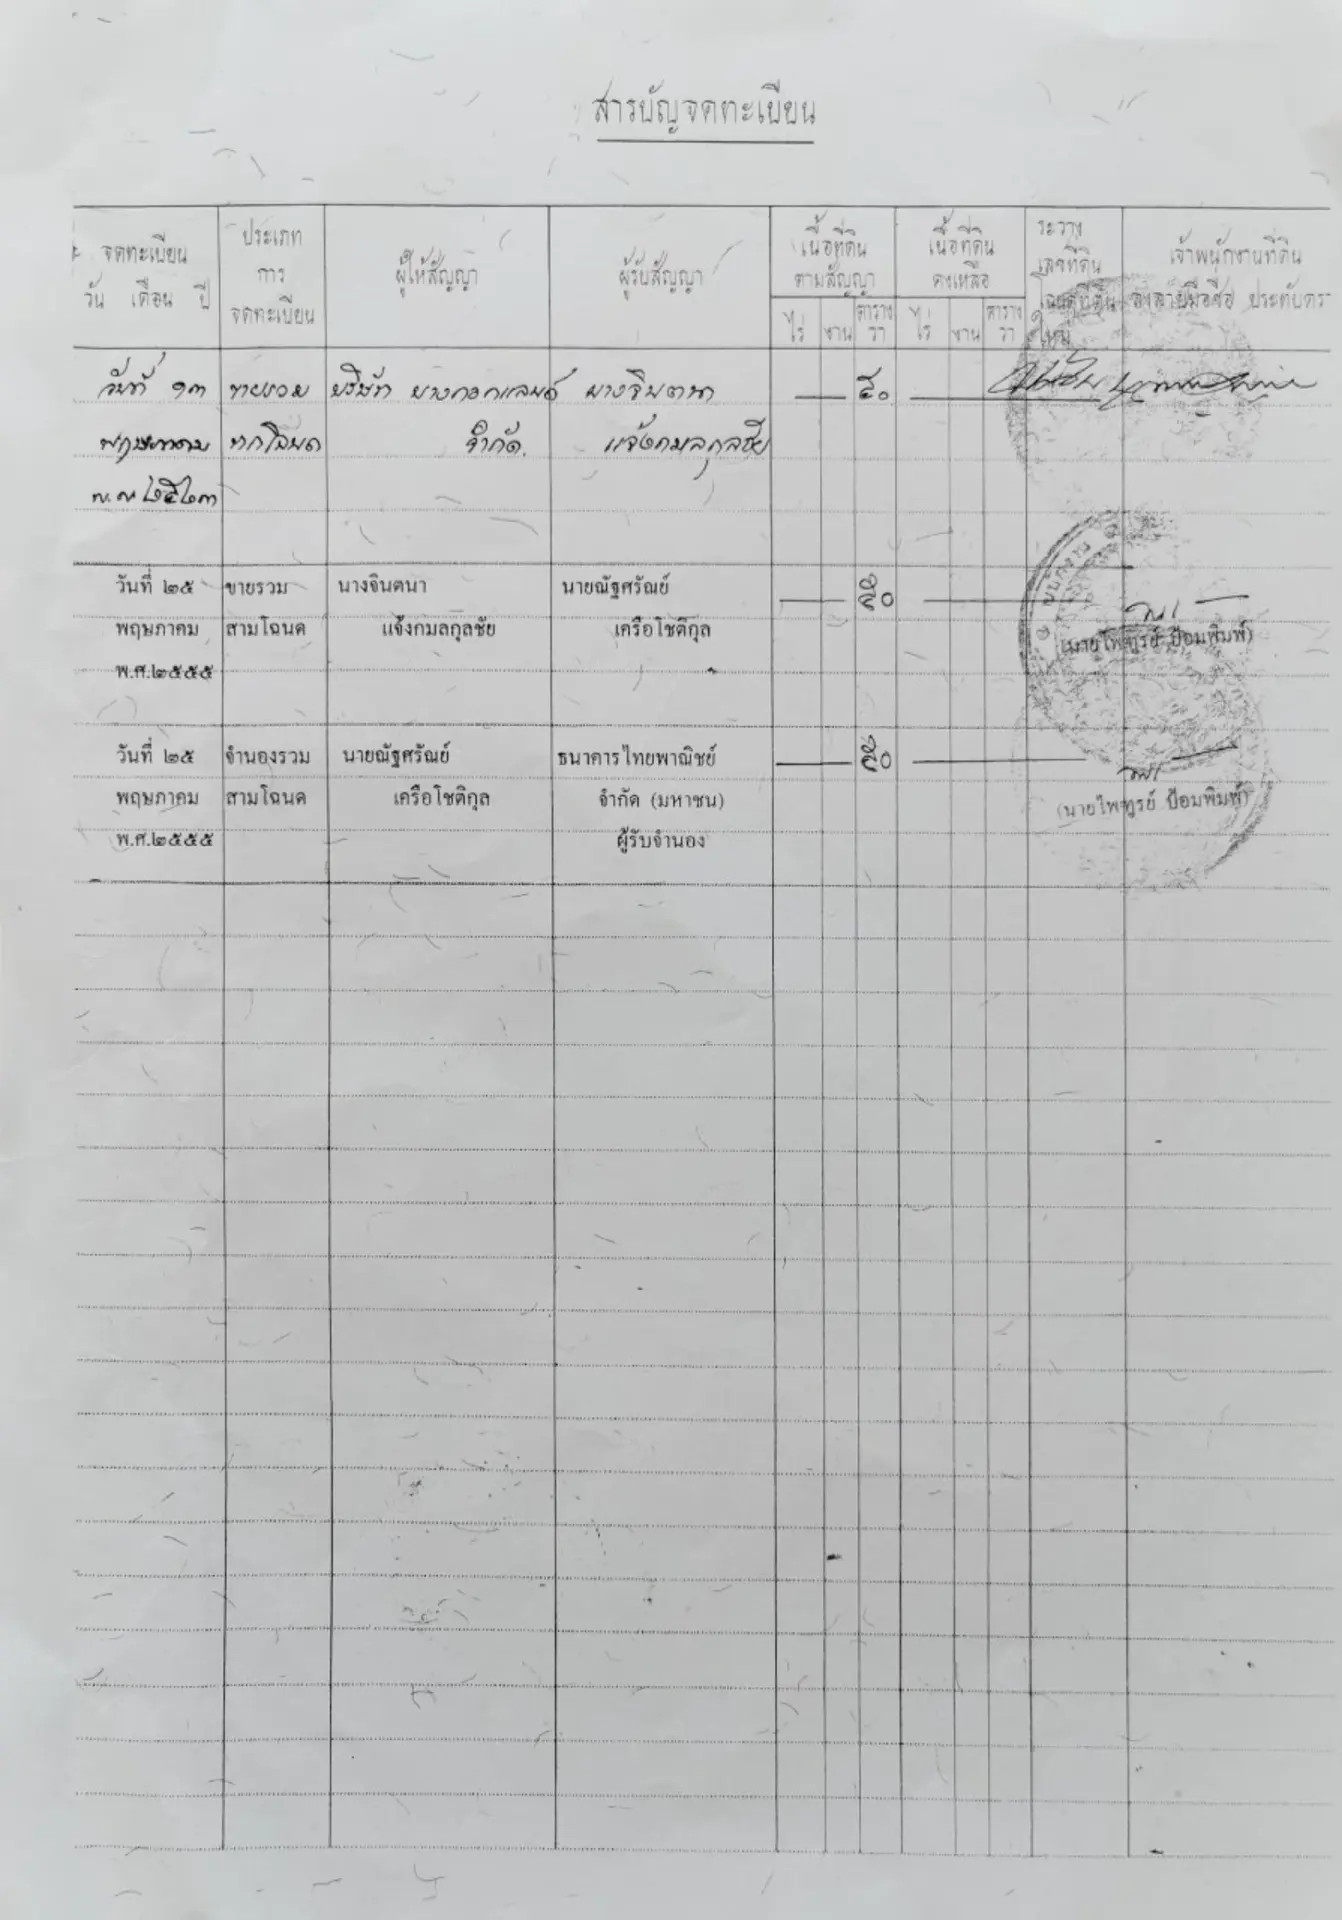 สารบัญจดทะเบียน
จดทะเบียน
วัน เดือน ปี
ประเภท
การ
จดทะเบียน
ผู้ให้สัญญา
ผู้รับสัญญา
เนื้อที่ดิน
ตามสัญญา
ไร่ งาน ตาราง
วา
เนื้อที่ดิน
คงเหลือ
ไร่ งาน ตาราง
วา
ระวาง
เลขที่ดิน
โฉนดที่ดิน
ใหม่
เจ้าพนักงานที่ดิน
ลงลายมือชื่อ ประทับตรา
วันที่ ๑๓ ขายรวม บริษัท บางกอกแลนด์ นางจินตนา ๕๐
พฤษภาคม หกโฉนด จำกัด. แจ้งกมลกุลชัย
พ.ศ ๒๕๒๓
วันที่ ๒๕ ขายรวม นางจินตนา นายณัฐศรัณย์ ๕๐
พฤษภาคม สามโฉนด แจ้งกมลกุลชัย เครือโชติกุล (นายไพฑูรย์ ป้อมพิมพ์)
พ.ศ.๒๕๕๕
วันที่ ๒๕ จำนองรวม นายณัฐศรัณย์ ธนาคารไทยพาณิชย์ ๕๐
พฤษภาคม สามโฉนด เครือโชติกุล จำกัด (มหาชน) (นายไพฑูรย์ ป้อมพิมพ์)
พ.ศ.๒๕๕๕ ผู้รับจำนอง